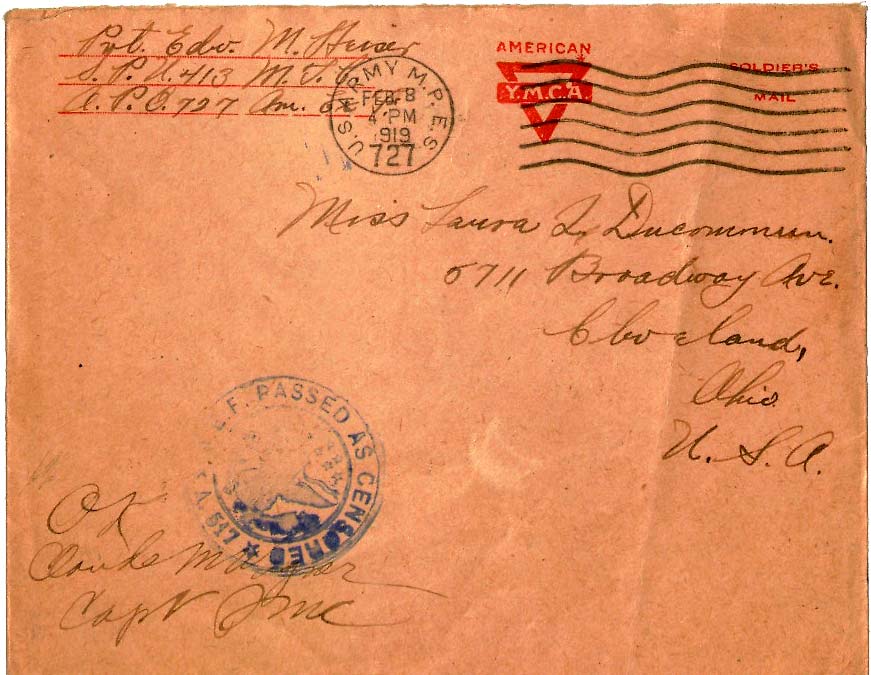 Pvt. Edw. M. Heiser
S.P.U. 413 M.T.C.
A.P.O. 727 Am. E.F.
U.S. ARMY M.P.E.S.
FEB 8
4 PM
1919
727
AMERICAN
Y.M.C.A.
SOLDIER'S
MAIL
Miss Laura L. Ducommun.
5711 Broadway Ave.
Cleveland,
Ohio
U.S.A.
E.F. PASSED AS CENSORED
A. 517
OK
Claude
Capt